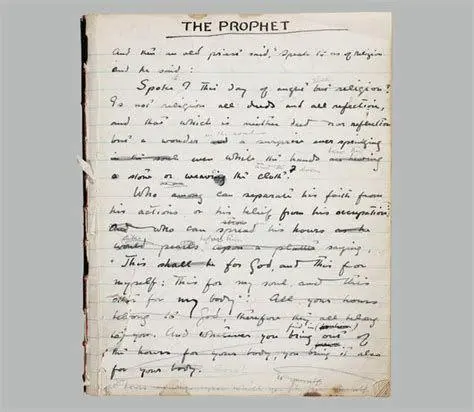 THE PROPHET
And then an old priest said, "Speak to us of religion
and he said:
Spoke I this day of aught but religion?
Is not religion all deeds and all reflection,
and that which is neither deed nor reflection
but a wonder and a surprise ever springing
in the soul
in his soul even while the hands
a stone or weaving the cloth?
Who among can separate his faith from
his actions, or his belief from his occupation;
And who can spread his hours as he
would pearls upon a saying,
This shall be for God, and this for
myself; This for my soul, and this
other for my body? All your hours
belong to God, therefore they all belong
to you. And whatever you bring out of
the hours for your body, you bring it also
for your body.